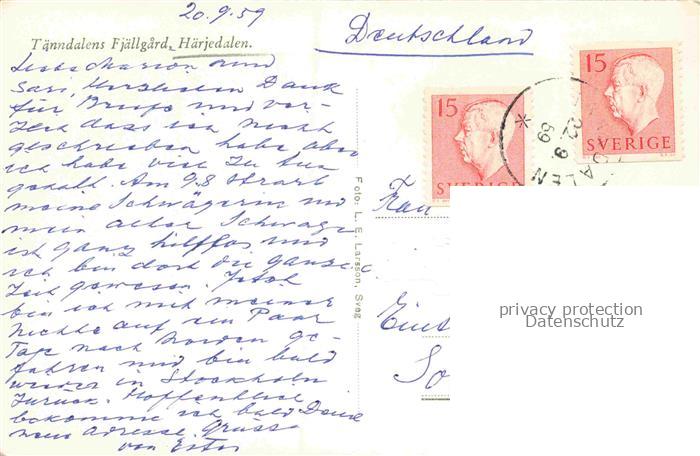 20.9.59
Tänndalens Fjällgård, Härjedalen.
Deutschland
Liebe Marion und
Sari, Herzlichen Dank
für Briefe und ver-
zeih dass ich nicht
geschrieben habe aber
ich habe viel zu tun
gehabt. Am 9.8 starb
meine Schwägerin und
mein alter Schwager
ist ganz hilflos und
ich bin dort die ganze
Zeit gewesen. Jetzt
bin ich mit meiner
Nichte auf ein Paar
Tage nach Norden ge-
fahren und bin bald
wieder in Stockholm
zurück. Hoffentlich
bekomme ich bald Deine
neue Adresse. Grüsse
von Ester
Foto: L. E. Larsson, Sveg
15
SVERIGE
15
SVERIGE
22 9
59
DALEN
Frau
Eins
So
privacy protection
Datenschutz